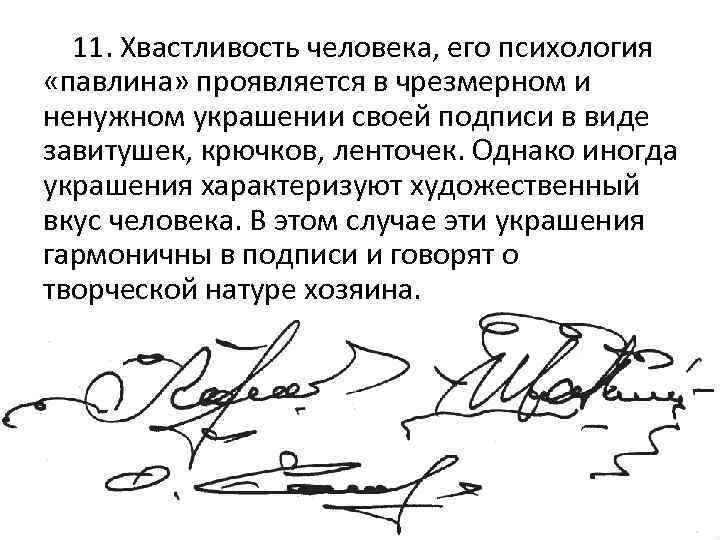 11. Хвастливость человека, его психология
«павлина» проявляется в чрезмерном и
ненужном украшении своей подписи в виде
завитушек, крючков, ленточек. Однако иногда
украшения характеризуют художественный
вкус человека. В этом случае эти украшения
гармоничны в подписи и говорят о
творческой натуре хозяина.